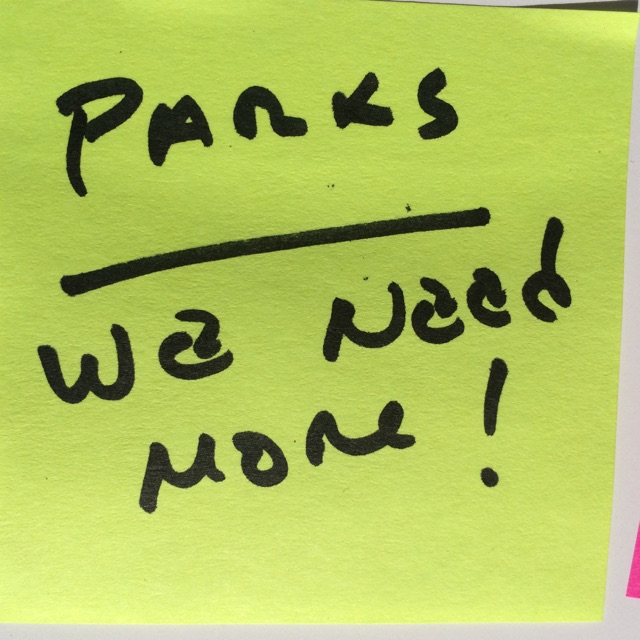 PARKS
We Need
More!